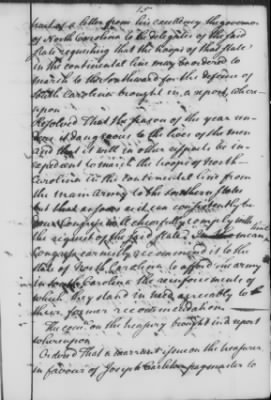 15
tract of a letter from his excellency the governor
of North Carolina to the delegates of the said
State requesting that the troops of that State
in the continental line may be ordered to
march to the Southward for the defence of
South Carolina brought in a report, where-
upon
Resolved That the season of the year ren-
ders it dangerous to the lives of the men
and that it will in other respects be in-
expedient to march the troops of North
Carolina in the continental line from
the main Army to the Southern States
but that as soon as it can consistently be
done Congress will chearfully comply with
the request of the said State. In the mean time
Congress earnestly recommend it to the
State of North Carolina to afford the army
in South Carolina the reinforcements of
which they stand in need agreeably to
their former recommendation.
The comee on the treasury brought in a report
whereupon
Ordered That a warrant issue on the treasurer
in favour of Joseph Carleton paymaster to